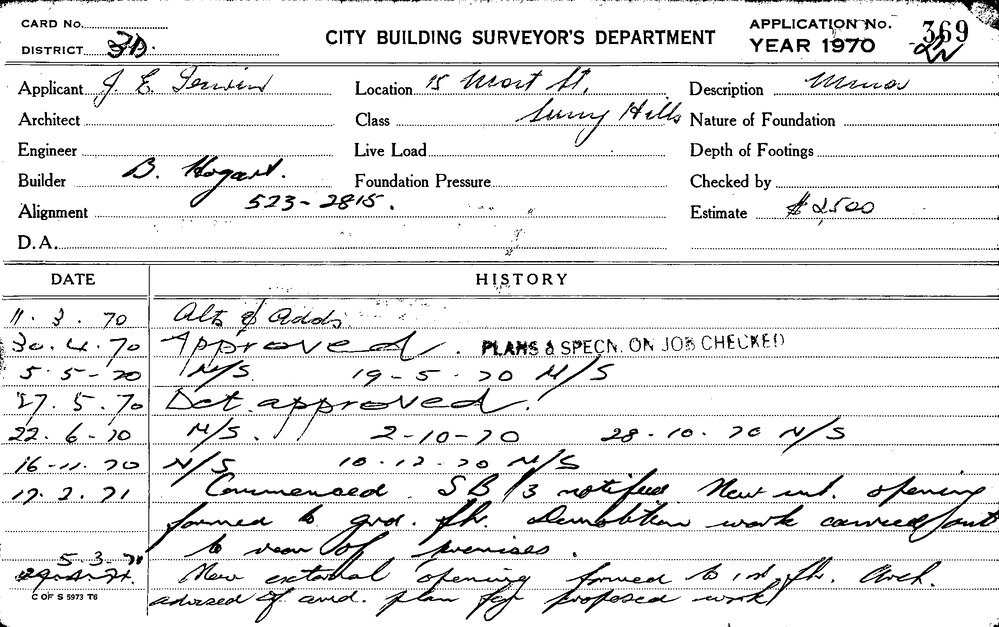 CARD No.
DISTRICT 3D.
CITY BUILDING SURVEYOR'S DEPARTMENT
APPLICATION No. 369
YEAR 1970
Applicant J. E.
Location 15 Mort St,
Description Minor
Architect
Class Surry Hills
Nature of Foundation
Engineer
Live Load
Depth of Footings
Builder B. Hogart.
Foundation Pressure
Checked by
Alignment 523-2815.
Estimate $2,500
D.A.
DATE HISTORY
11. 3. 70 Alts & Adds
30. 4. 70 Approved. PLANS & SPECN. ON JOB CHECKED
5. 5 - 70 N/S. 19 - 5 - 70 N/S
27. 5. 70 Dct. approved.
22. 6 - 70 N/S. 2 - 10 - 70 28 - 10. 70 N/S
16 - 11. 70 N/S 10. 12. 70 N/S
17. 2. 71 Commenced. SB 13 notified New int. opening
formed to grd. flr. Demolition work carried out
to rear of premises.
5. 3. 71 New external opening formed to 1st flr. Arch.
advised of amd. plan for proposed work
C OF S 5973 T6